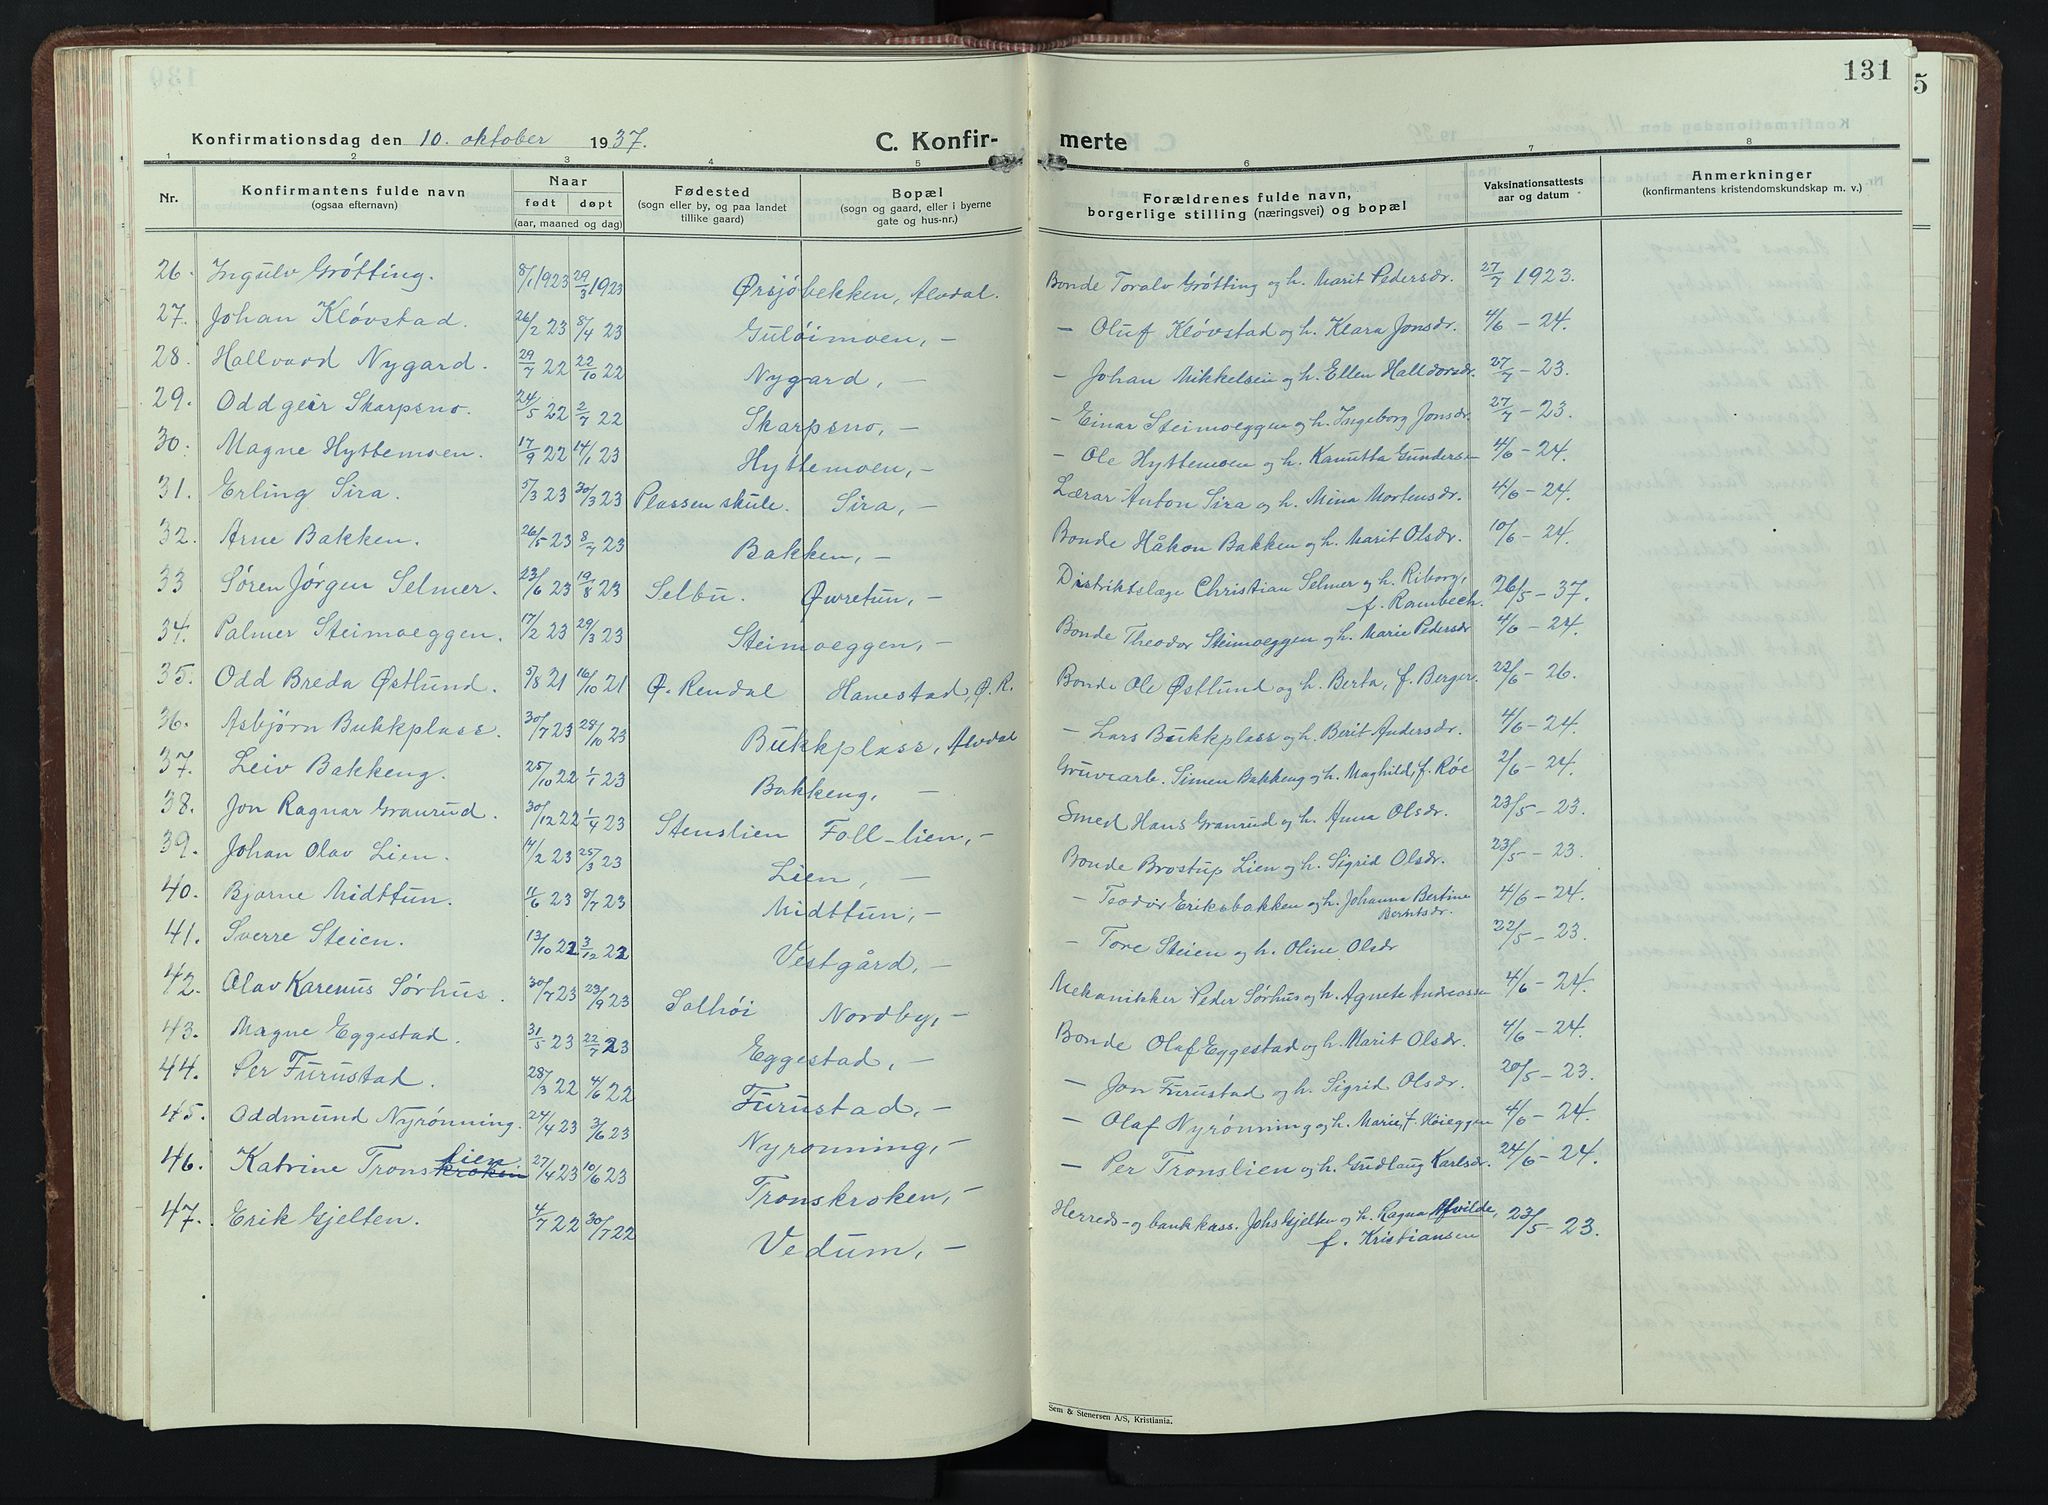 131
5
Konfirmationsdag den 10. oktober 1937.
C. Konfir- merte
1 2 3 4 5 6 7 8
Nr.
Konfirmantens fulde navn (ogsaa efternavn)
Naar født døpt (aar, maaned og dag)
Fødested (sogn eller by, og paa landet tillike gaard)
Bopæl (sogn og gaard, eller i byerne gate og hus-nr.)
Forældrenes fulde navn, borgerlige stilling (næringsvei) og bopæl
Vaksinationsattests aar og datum
Anmerkninger (konfirmantens kristendomskundskap m. v.)
26. Ingulv Grøtting. 8/1 1923 29/3 1923 Ørsjøbekken, Alvdal. Bonde Toralv Grøtting og h. Marit Pedersdr. 27/7 1923.
27. Johan Kløvstad. 26/2 23 8/4 23 Guløimoen, — — Oluf Kløvstad og h. Klara Jonsdr. 4/6 – 24.
28. Hallvard Nygard. 29/7 22 22/10 22 Nygard, — — Johan Mikkelsen og h. Ellen Halldorsdr. 27/7 – 23.
29. Oddgeir Skarpsno. 24/5 22 2/7 22 Skarpsno, — — Einar Steimoeggen og h. Ingeborg Jonsdr. 27/7 – 23.
30. Magne Hyttemoen. 17/9 22 14/1 23 Hyttemoen, — — Ole Hyttemoen og h. Kanutta Gundersen 4/6 – 24.
31. Erling Sira. 5/3 23 30/3 23 Plassen skule. Sira, — Lærar Anton Sira og h. Mina Mortensdr. 4/6 – 24.
32. Arne Bakken. 26/5 23 8/7 23 Bakken, — Bonde Håkon Bakken og h. Marit Olsdr. 10/6 – 24.
33 Søren Jørgen Selmer. 23/6 23 19/8 23 Selbu. Øvretun, — Distriktslæge Christian Selmer og h. Riborg, f. Rambech. 26/5 – 37.
34. Palmer Steimoeggen. 17/2 23 29/3 23 Steimoeggen, — Bonde Theodor Steimoeggen og h. Marie Pedersdr 4/6 – 24.
35. Odd Breda Østlund. 5/8 21 16/10 21 Ø. Rendal Hanestad, Ø. R. Bonde Ole Østlund og h. Berta, f. Berger. 22/6 – 26.
36. Asbjørn Bukkplass. 30/7 23 28/10 23 Bukkplass, Alvdal — Lars Bukkplass og h. Berit Andersdr. 4/6 – 24.
37. Leiv Bakkeng. 25/10 22 1/1 23 Bakkeng, — Gruvearb. Simen Bakkeng og h. Maghild, f. Røe 2/6 – 24.
38. Jon Ragnar Granrud. 30/12 22 1/4 23 Stenslien Foll-lien, — Smed Hans Granrud og h. Anna Olsdr. 23/5 – 23.
39. Johan Olav Lien. 4/2 23 25/3 23 Lien, — Bonde Brostup Lien og h. Sigrid Olsdr. 23/5 – 23.
40. Bjarne Midttun. 11/6 23 8/7 23 Midttun, — — Teodor Eriksbakken og h. Johanna Bertine Berntsdr. 4/6 – 24.
41. Sverre Steien. 13/10 22 3/12 22 Vestgård, — — Tore Steien og h. Oline Olsdr 22/5 – 23.
42. Olav Karenus Sørhus. 30/7 23 23/9 23 Solhøi Nordby, — Mekanikker Peder Sørhus og h. Agnete Andreassen 4/6 – 24.
43. Magne Eggestad. 31/5 23 22/7 23 Eggestad, — Bonde Olaf Eggestad og h. Marit Olsdr. 4/6 – 24.
44. Per Furustad. 28/3 22 4/6 22 Furustad, — — Jon Furustad og h. Sigrid Olsdr. 20/5 – 23.
45. Oddmund Nyrønning. 24/4 23 3/6 23 Nyrønning, — — Olaf Nyrønning og h. Marie, f. Høieggen 4/6 – 24.
46. Katrine Tronskroken lien 27/4 23 10/6 23 Tronskroken, — — Per Tronslien og h. Gudlaug Karlsdr. 24/6 – 24.
47. Erik Gjelten. 4/7 22 30/7 22 Vedum, — Herreds- og bankkass. Johs Gjelten og h. Ragna Alvilde, f. Kristiansen 23/5 – 23.
Sem & Stenersen A/S, Kristiania.